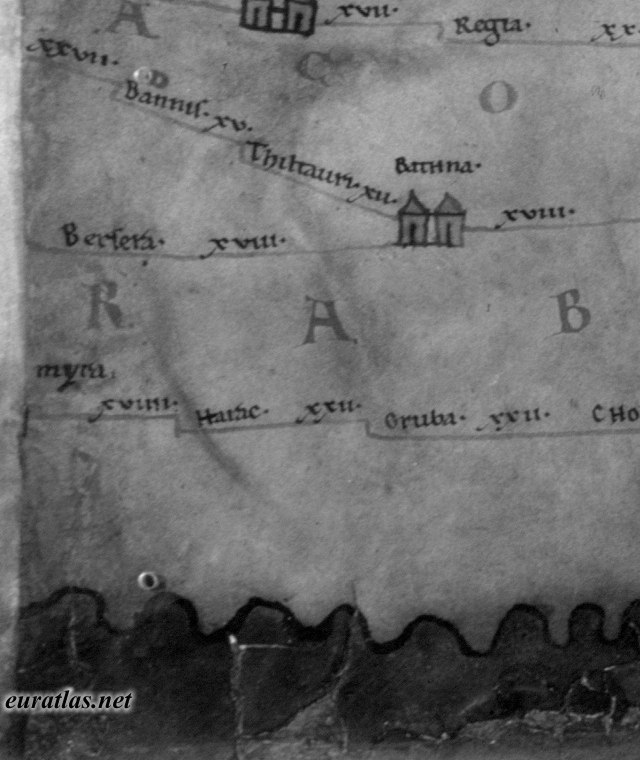 A xvii· Regia· xx
xxvii· C O
Bannis· xv·
Thiltauri· xii·
Bathna·
xviii·
Bersera· xviii·
R A B
myra·
xviiii· Haric· xxii· Oruba· xxii· CHO
euratlas.net